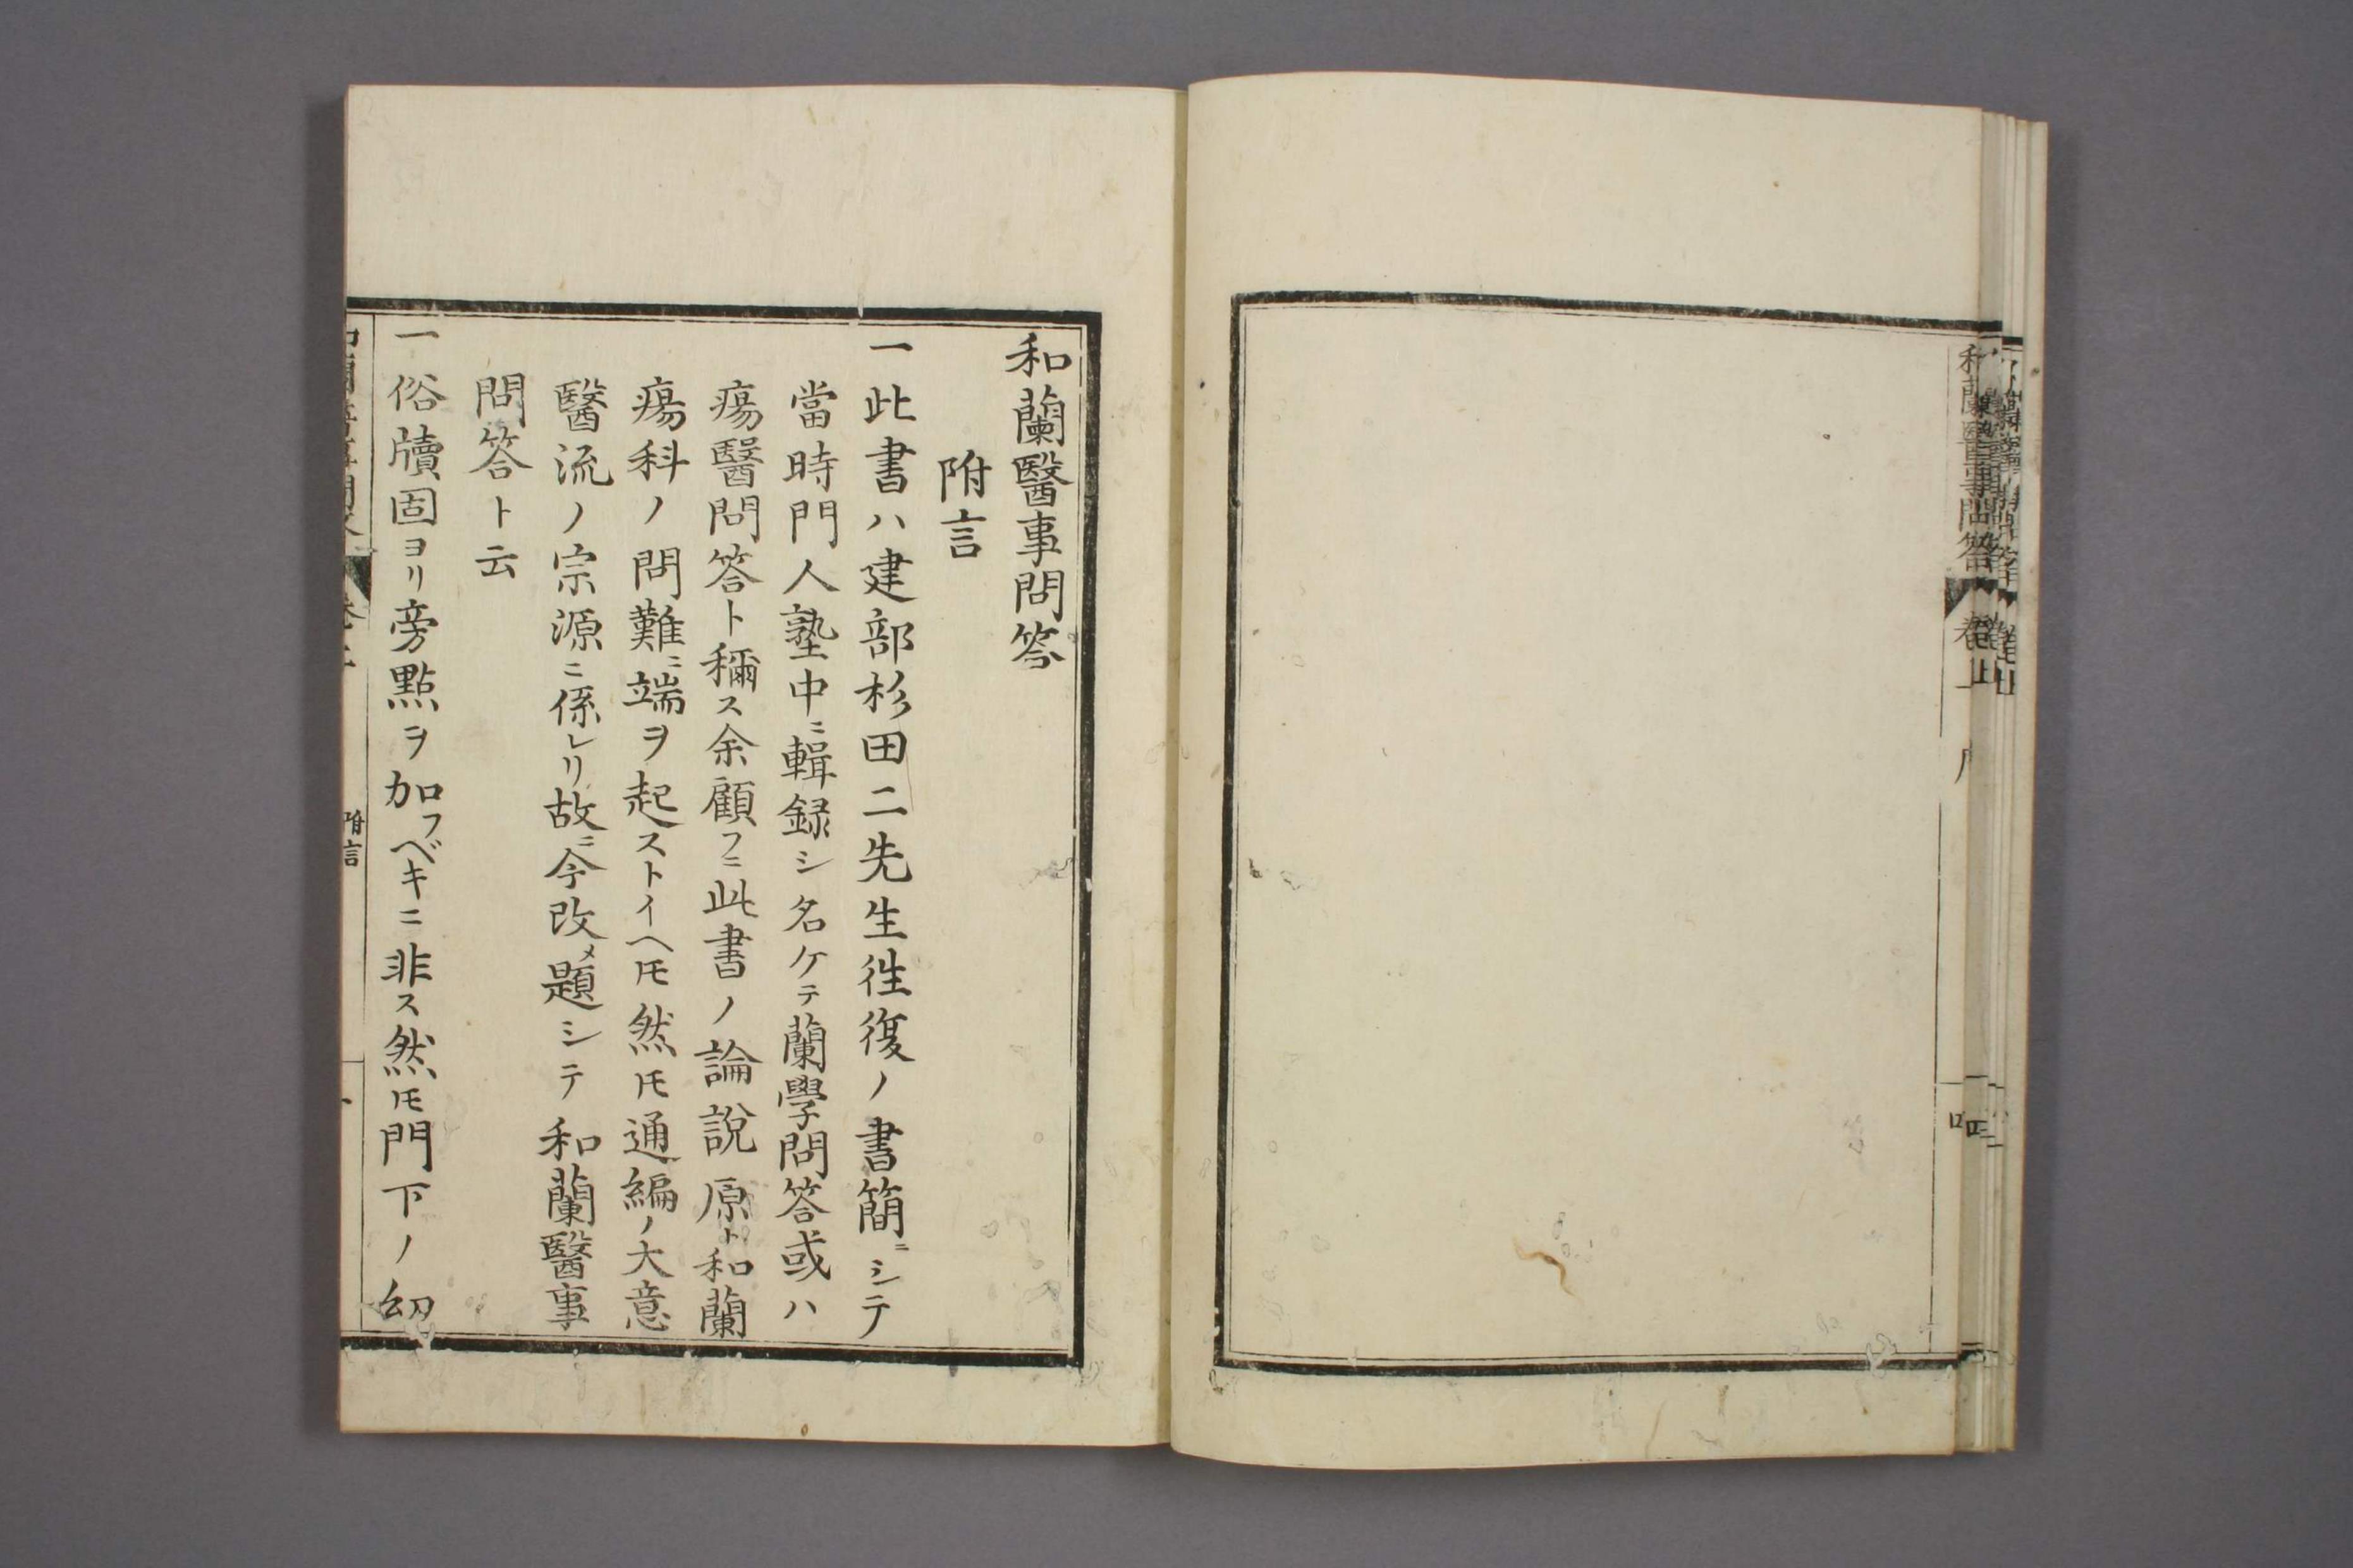 和蘭醫事問答
附言
一此書ハ建部杉田二先生徃復ノ書簡ニシテ
當時門人塾中ニ輯録シ名ケテ蘭學問答或ハ
瘍醫問答ト穪ス余顧フニ此書ノ論說原ト和蘭
瘍科ノ問難ニ端ヲ起ストイヘ𪜈然𪜈通編ノ大意
醫流ノ宗源ニ係レリ故ニ今改メ題シテ和蘭醫事
問答ト云
一俗牘固ヨリ旁點ヲ加フベキニ非ス然𪜈門下ノ幼
附言
和蘭醫事問答
卷